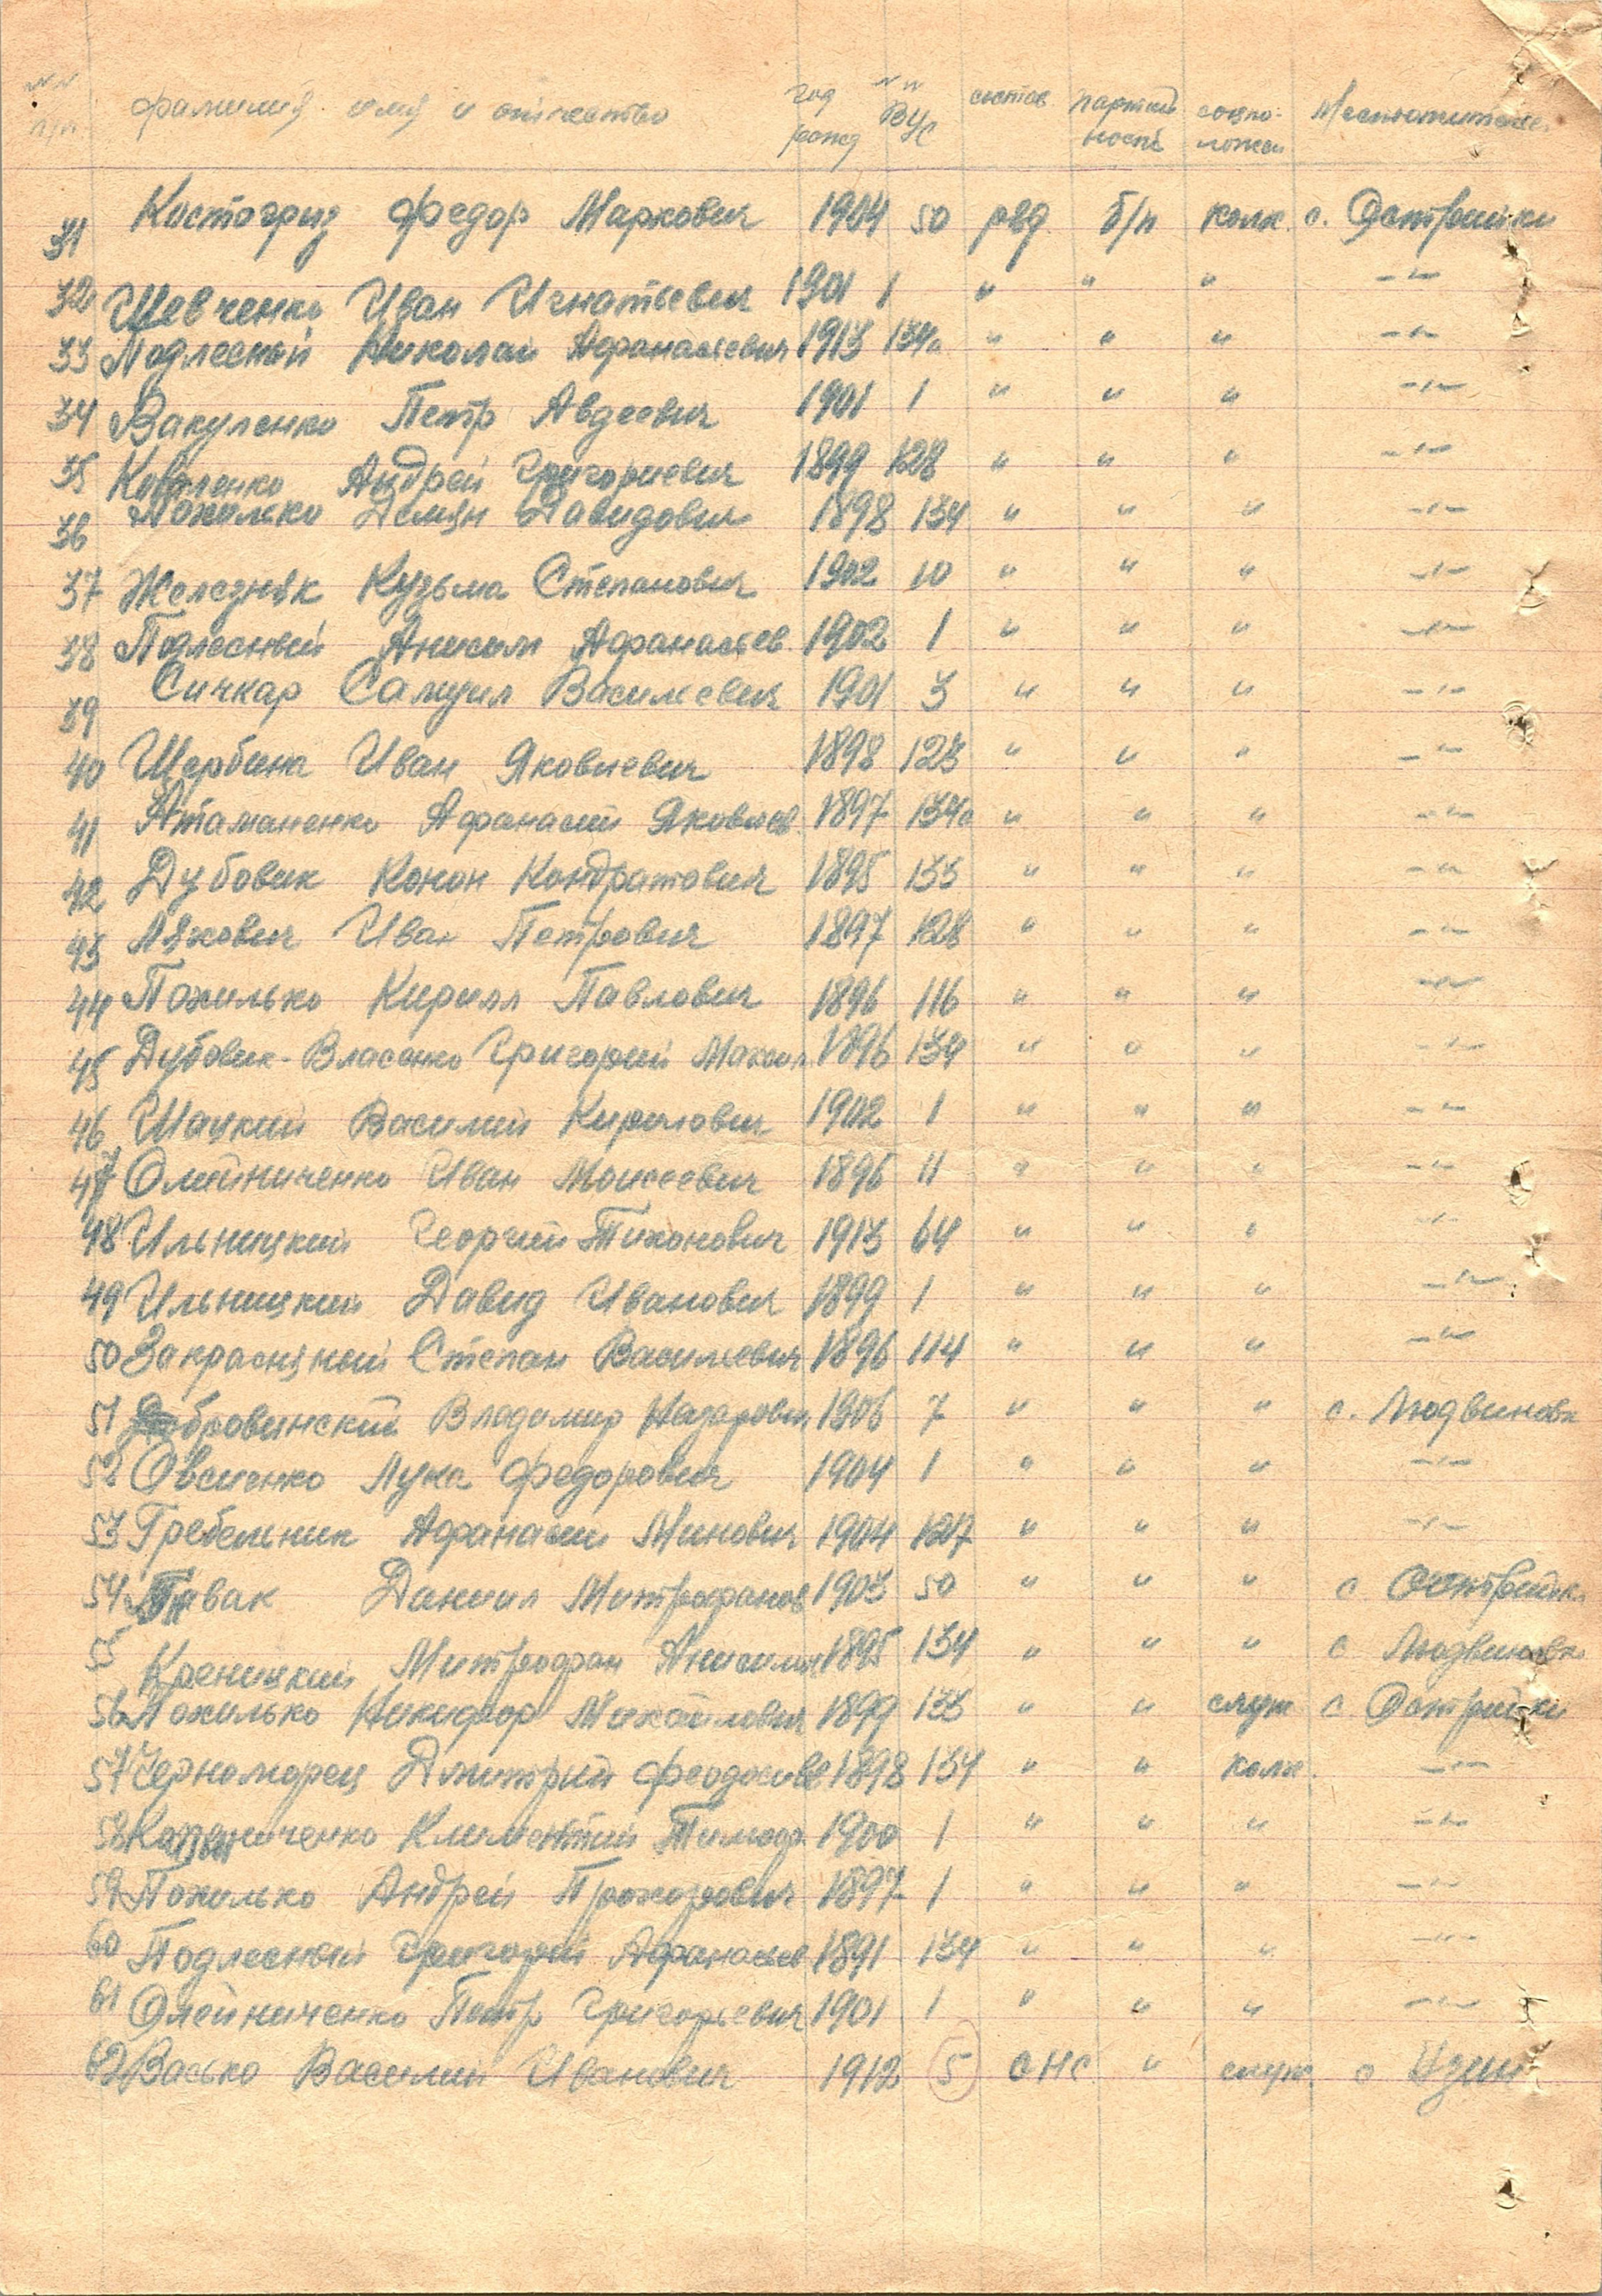 NN п/п. фамилия имя и отчество год рожд NN ВУС состав партийность соцположен Местожительс.
31 Костогриз Федор Маркович 1904 50 ряд. б/п колх. с. Острийки
32 Шевченко Иван Игнатьевич 1901 1 " " " -"-
33 Подлесный Николай Афанасиевич 1913 134а " " " -"-
34 Вакуленко Петр Авдеевич 1901 1 " " " -"-
35 Коваленко Андрей Григориевич 1899 128 " " " -"-
36 Похилько Демян Давидович 1898 134 " " " -"-
37 Железняк Кузьма Степанович 1902 10 " " " -"-
38 Подлесный Анисим Афанасьев. 1902 1 " " " -"-
39 Сичкар Самуил Василиевич 1901 3 " " " -"-
40 Щербина Иван Яковлевич 1898 123 " " " -"-
41 Атаманенко Афанасий Яковлев. 1897 134а " " " -"-
42 Дубовик Конон Кондратович 1895 133 " " " -"-
43 Ляхович Иван Петрович 1897 128 " " " -"-
44 Похилько Кирилл Павлович 1896 116 " " " -"-
45 Дубовик-Власенко Григорий 1896 134 " " " -"-
46 Шацкий Василий Кирилович 1902 1 " " " -"-
47 Олейниченко Иван Моисеевич 1896 11 " " " -"-
48 Ильницкий Георгий Тихонович 1913 64 " " " -"-
49 Ильницкий Давид Иванович 1899 1 " " " -"-
50 Закрасняный Степан Василиевич 1896 114 " " " -"-
51 Добровинский Владимир Назарович 1906 7 " " " с. Людвиновк
52 Овсиенко Лука Федорович 1904 1 " " " -"-
53 Гребельник Афанасий Минович 1904 127 " " " -"-
54 Даниил Митрофанов 1903 50 " " " с Острийк.
55 Креницкий Митрофан Анисимов 1895 134 " " " с Людвиновк.
56 Похилько Никифор Михайлович 1899 133 " " служ с Острийки
57 Черноморец Дмитрий Феодосиев 1898 134 " " колх. -"-
58 Климентий Тимоф. 1900 1 " " " -"-
59 Похилько Андрей Прохорович 1897 1 " " " -"-
60 Подлесный Григорий Афанасьев 1891 134 " " " -"-
61 Олейниченко Петр Григорьевич 1901 1 " " " -"-
62 Васько Василий Иванович 1912 5 снс " служ. с Узин